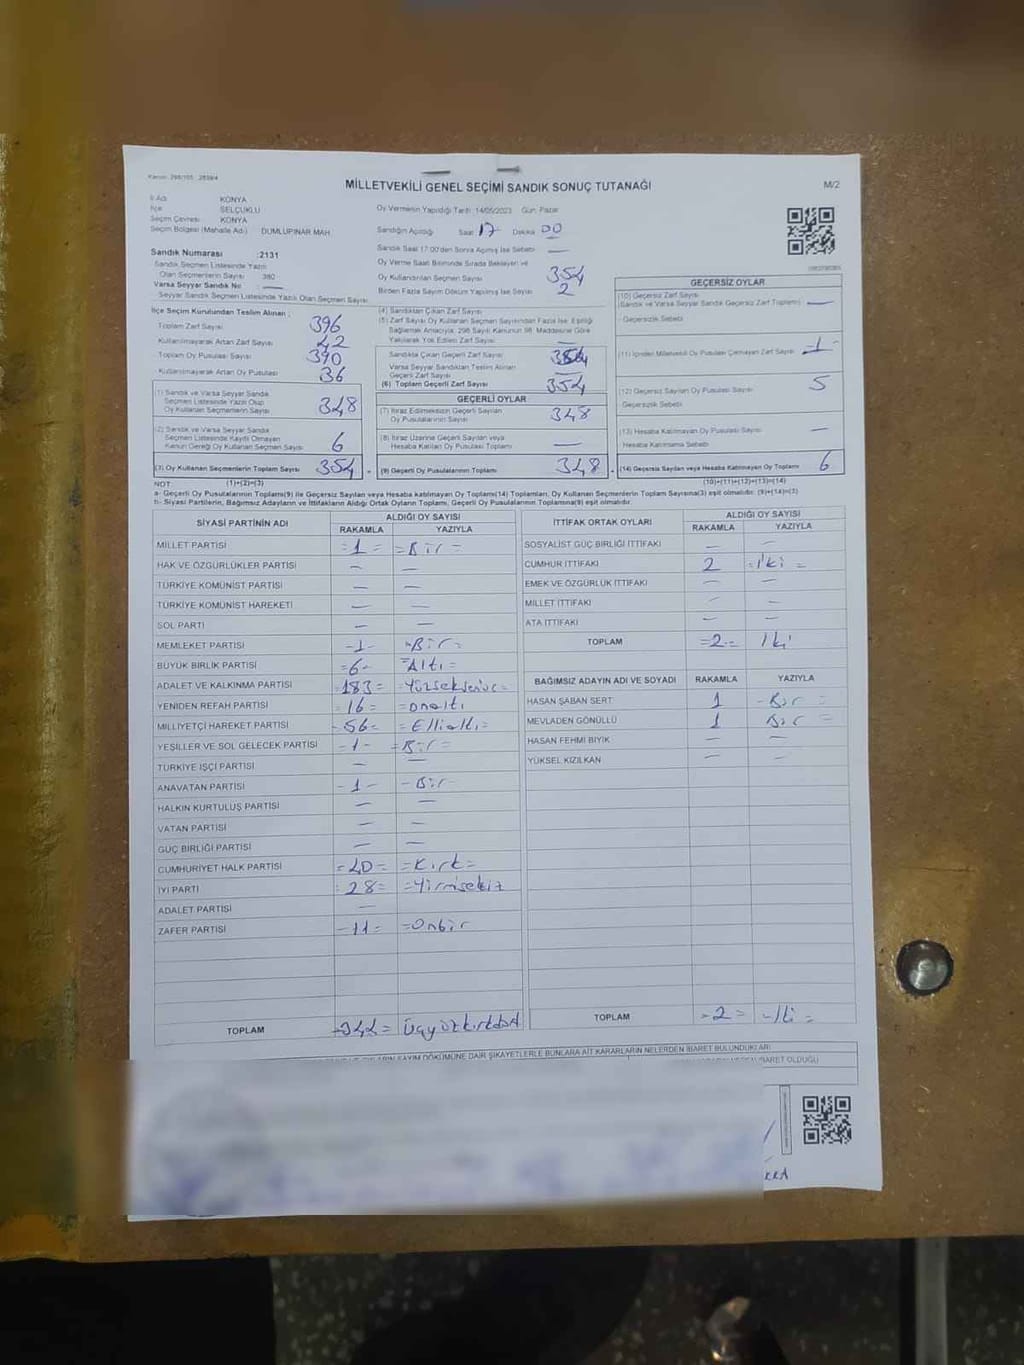 MİLLETVEKİLİ GENEL SEÇİMİ SANDIK SONUÇ TUTANAĞI
M/2
İl Adı KONYA
İlçe SELÇUKLU
Seçim Çevresi KONYA
Seçim Bölgesi (Mahalle Adı) DUMLUPINAR MAH.
Sandık Numarası :2131
Sandık Seçmen Listesinde Yazılı
Olan Seçmenlerin Sayısı 380
Varsa Seyyar Sandık No
Seyyar Sandık Seçmen Listesinde Yazılı Olan Seçmen Sayısı
Oy Vermenin Yapıldığı Tarih 14/05/2023 Gün: Pazar
Sandığın Açıldığı Saat 17 Dakika 00
Sandık Saat 17:00'den Sonra Açılmış İse Sebebi —
Oy Verme Saati Bitiminde Sırada Bekleyen ve
Oy Kullandırılan Seçmen Sayısı 354
Birden Fazla Sayım Döküm Yapılmış İse Sayısı 2
İlçe Seçim Kurulundan Teslim Alınan :
Toplam Zarf Sayısı 396
Kullanılmayarak Artan Zarf Sayısı 42
Toplam Oy Pusulası Sayısı 390
Kullanılmayarak Artan Oy Pusulası 36
(1) Sandık ve Varsa Seyyar Sandık
Seçmen Listesinde Yazılı Olup
Oy Kullanan Seçmenlerin Sayısı 348
(2) Sandık ve Varsa Seyyar Sandık
Seçmen Listesinde Kayıtlı Olmayan
Kanun Gereği Oy Kullanan Seçmen Sayısı 6
(3) Oy Kullanan Seçmenlerin Toplam Sayısı 354
(1)+(2)=(3)
(4) Sandıktan Çıkan Zarf Sayısı
(5) Zarf Sayısı Oy Kullanan Seçmen Sayısından Fazla İse, Eşitliği
Sağlamak Amacıyla, 298 Sayılı Kanunun 98. Maddesine Göre
Yakılarak Yok Edilen Zarf Sayısı —
Sandıkta Çıkan Geçerli Zarf Sayısı 354
Varsa Seyyar Sandıktan Teslim Alınan
Geçerli Zarf Sayısı —
(6) Toplam Geçerli Zarf Sayısı 354
GEÇERLİ OYLAR
(7) İtiraz Edilmeksizin Geçerli Sayılan
Oy Pusulalarının Sayısı 348
(8) İtiraz Üzerine Geçerli Sayılan veya
Hesaba Katılan Oy Pusulası Toplamı —
(9) Geçerli Oy Pusulalarının Toplamı 348
GEÇERSİZ OYLAR
(10) Geçersiz Zarf Sayısı
(Sandık ve Varsa Seyyar Sandık Geçersiz Zarf Toplamı) —
Geçersizlik Sebebi
(11) İçinden Milletvekili Oy Pusulası Çıkmayan Zarf Sayısı -1-
(12) Geçersiz Sayılan Oy Pusulası Sayısı 5
Geçersizlik Sebebi
(13) Hesaba Katılmayan Oy Pusulası Sayısı —
Hesaba Katılmama Sebebi
(14) Geçersiz Sayılan veya Hesaba Katılmayan Oy Toplamı 6
(10)+(11)+(12)+(13)=(14)
NOT
a- Geçerli Oy Pusulalarının Toplamı(9) ile Geçersiz Sayılan veya Hesaba katılmayan Oy Toplamı(14) Toplamları, Oy Kullanan Seçmenlerin Toplam Sayısına(3) eşit olmalıdır. (9)+(14)=(3)
b- Siyasi Partilerin, Bağımsız Adayların ve İttifakların Aldığı Ortak Oyların Toplamı, Geçerli Oy Pusulalarının Toplamına(9) eşit olmalıdır.
SİYASİ PARTİNİN ADI
ALDIĞI OY SAYISI
RAKAMLA YAZIYLA
MİLLET PARTİSİ =1= =Bir=
HAK VE ÖZGÜRLÜKLER PARTİSİ — —
TÜRKİYE KOMÜNİST PARTİSİ — —
TÜRKİYE KOMÜNİST HAREKETİ — —
SOL PARTİ — —
MEMLEKET PARTİSİ -1- =Bir=
BÜYÜK BİRLİK PARTİSİ =6- =Altı=
ADALET VE KALKINMA PARTİSİ =183=
YENİDEN REFAH PARTİSİ =16= =onaltı
MİLLİYETÇİ HAREKET PARTİSİ -56= =Ellialtı=
YEŞİLLER VE SOL GELECEK PARTİSİ -1- =Bir=
TÜRKİYE İŞÇİ PARTİSİ — —
ANAVATAN PARTİSİ -1- -Bir-
HALKIN KURTULUŞ PARTİSİ — —
VATAN PARTİSİ — —
GÜÇ BİRLİĞİ PARTİSİ — —
CUMHURİYET HALK PARTİSİ =40= =Kırk=
İYİ PARTİ =28= =Yirmisekiz
ADALET PARTİSİ —
ZAFER PARTİSİ -11= =Onbir
TOPLAM -344= Üçyüzkırkdört
İTTİFAK ORTAK OYLARI
ALDIĞI OY SAYISI
RAKAMLA YAZIYLA
SOSYALİST GÜÇ BİRLİĞİ İTTİFAKI — —
CUMHUR İTTİFAKI 2 =İki=
EMEK VE ÖZGÜRLÜK İTTİFAKI — —
MİLLET İTTİFAKI — —
ATA İTTİFAKI — —
TOPLAM =2= İki
BAĞIMSIZ ADAYIN ADI VE SOYADI RAKAMLA YAZIYLA
HASAN ŞABAN SERT 1 -Bir=
MEVLADEN GÖNÜLLÜ 1 Bir=
HASAN FEHMİ BIYIK — —
YÜKSEL KIZILKAN — —
TOPLAM -2= -İki=
OYLARIN SAYIM DÖKÜMÜNE DAİR ŞİKAYETLERLE BUNLARA AİT KARARLARIN NELERDEN İBARET BULUNDUKLARI
İBARET OLDUĞU